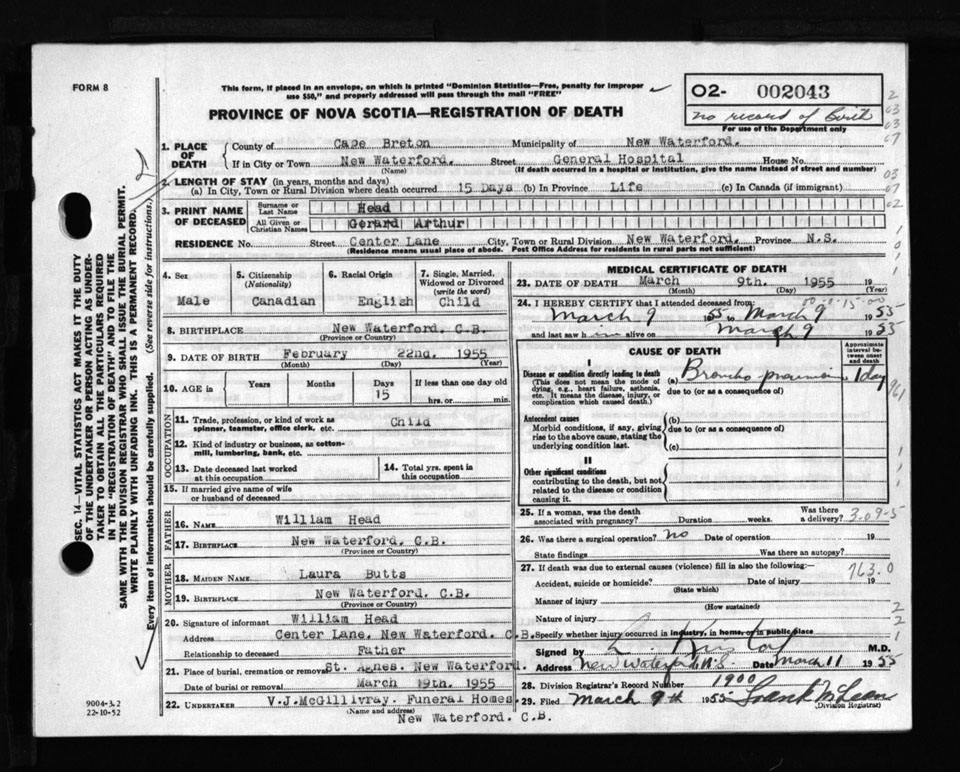 FORM 8
This form, if placed in an envelope, on which is printed "Dominion Statistics—Free, penalty for improper
use $50," and properly addressed will pass through the mail "FREE"
PROVINCE OF NOVA SCOTIA—REGISTRATION OF DEATH
02- 002043
no record of birth
For use of the Department only
1. PLACE OF DEATH
County of Cape Breton Municipality of New Waterford.
If in City or Town New Waterford. Street General Hospital House No.
(Name) (If death occurred in a hospital or institution, give the name instead of street and number)
2. LENGTH OF STAY (in years, months and days)
(a) In City, Town or Rural Division where death occurred 15 Days (b) In Province Life (c) In Canada (if immigrant)
3. PRINT NAME OF DECEASED
Surname or Last Name Head
All Given or Christian Names Gerard Arthur
RESIDENCE No. Street Center Lane City, Town or Rural Division New Waterford. Province N.S.
(Residence means usual place of abode. Post Office Address for residents in rural parts not sufficient)
4. Sex Male
5. Citizenship (Nationality) Canadian
6. Racial Origin English
7. Single, Married, Widowed or Divorced (write the word) Child
8. BIRTHPLACE New Waterford. C.B.
(Province or Country)
9. DATE OF BIRTH February 22nd. 1955
(Month) (Day) (Year)
10. AGE in Years Months Days 15 If less than one day old hrs. or min.
OCCUPATION
11. Trade, profession, or kind of work as spinner, teamster, office clerk, etc. Child
12. Kind of industry or business, as cotton-mill, lumbering, bank, etc.
13. Date deceased last worked at this occupation
14. Total yrs. spent in this occupation
15. If married give name of wife or husband of deceased
FATHER
16. NAME William Head
17. BIRTHPLACE New Waterford. C.B.
(Province or Country)
MOTHER
18. MAIDEN NAME Laura Butts
19. BIRTHPLACE New Waterford. C.B.
(Province or Country)
20. Signature of informant William Head
Address Center Lane. New Waterford. C.B.
Relationship to deceased Father
21. Place of burial, cremation or removal St. Agnes. New Waterford.
Date of burial or removal March 19th. 1955
22. UNDERTAKER V.J.McGillivray. Funeral Homes.
(Name and address) New Waterford. C.B.
MEDICAL CERTIFICATE OF DEATH
23. DATE OF DEATH March 9th. 1955 19
(Month) (Day) (Year)
24. I HEREBY CERTIFY that I attended deceased from:
00-0-15-00
March 9 1955 to March 9 1955
and last saw him alive on March 9 1955
CAUSE OF DEATH
Approximate interval between onset and death
I
Disease or condition directly leading to death
(This does not mean the mode of dying, e.g., heart failure, asthenia, etc. It means the disease, injury, or complication which caused death.)
(a) Broncho pneumonia 1 day
due to (or as a consequence of)
Antecedent causes
Morbid conditions, if any, giving rise to the above cause, stating the underlying condition last.
(b)
due to (or as a consequence of)
(c)
II
Other significant conditions
contributing to the death, but not related to the disease or condition causing it.
25. If a woman, was the death associated with pregnancy? Duration weeks. Was there a delivery? 3-09-5
26. Was there a surgical operation? no Date of operation 19
State findings Was there an autopsy?
27. If death was due to external causes (violence) fill in also the following: 763.0
Accident, suicide or homicide? Date of injury 19
(State which)
Manner of injury
(How sustained)
Nature of injury
Specify whether injury occurred in industry, in home, or in public place
Signed by M.D.
Address New Waterford N.S. Date March 11 1955
28. Division Registrar's Record Number 1900
29. Filed March 9th 1955 Frank McLean
(Division Registrar)
SEC. 14—VITAL STATISTICS ACT MAKES IT THE DUTY
OF THE UNDERTAKER OR PERSON ACTING AS UNDER-
TAKER TO OBTAIN ALL THE PARTICULARS REQUIRED
IN THE "REGISTRATION OF DEATH" AND TO FILE THE
SAME WITH THE DIVISION REGISTRAR WHO SHALL ISSUE THE BURIAL PERMIT.
WRITE PLAINLY WITH UNFADING INK. THIS IS A PERMANENT RECORD.
Every item of information should be carefully supplied. (See reverse side for instructions.)
9004-3.2
22-10-52